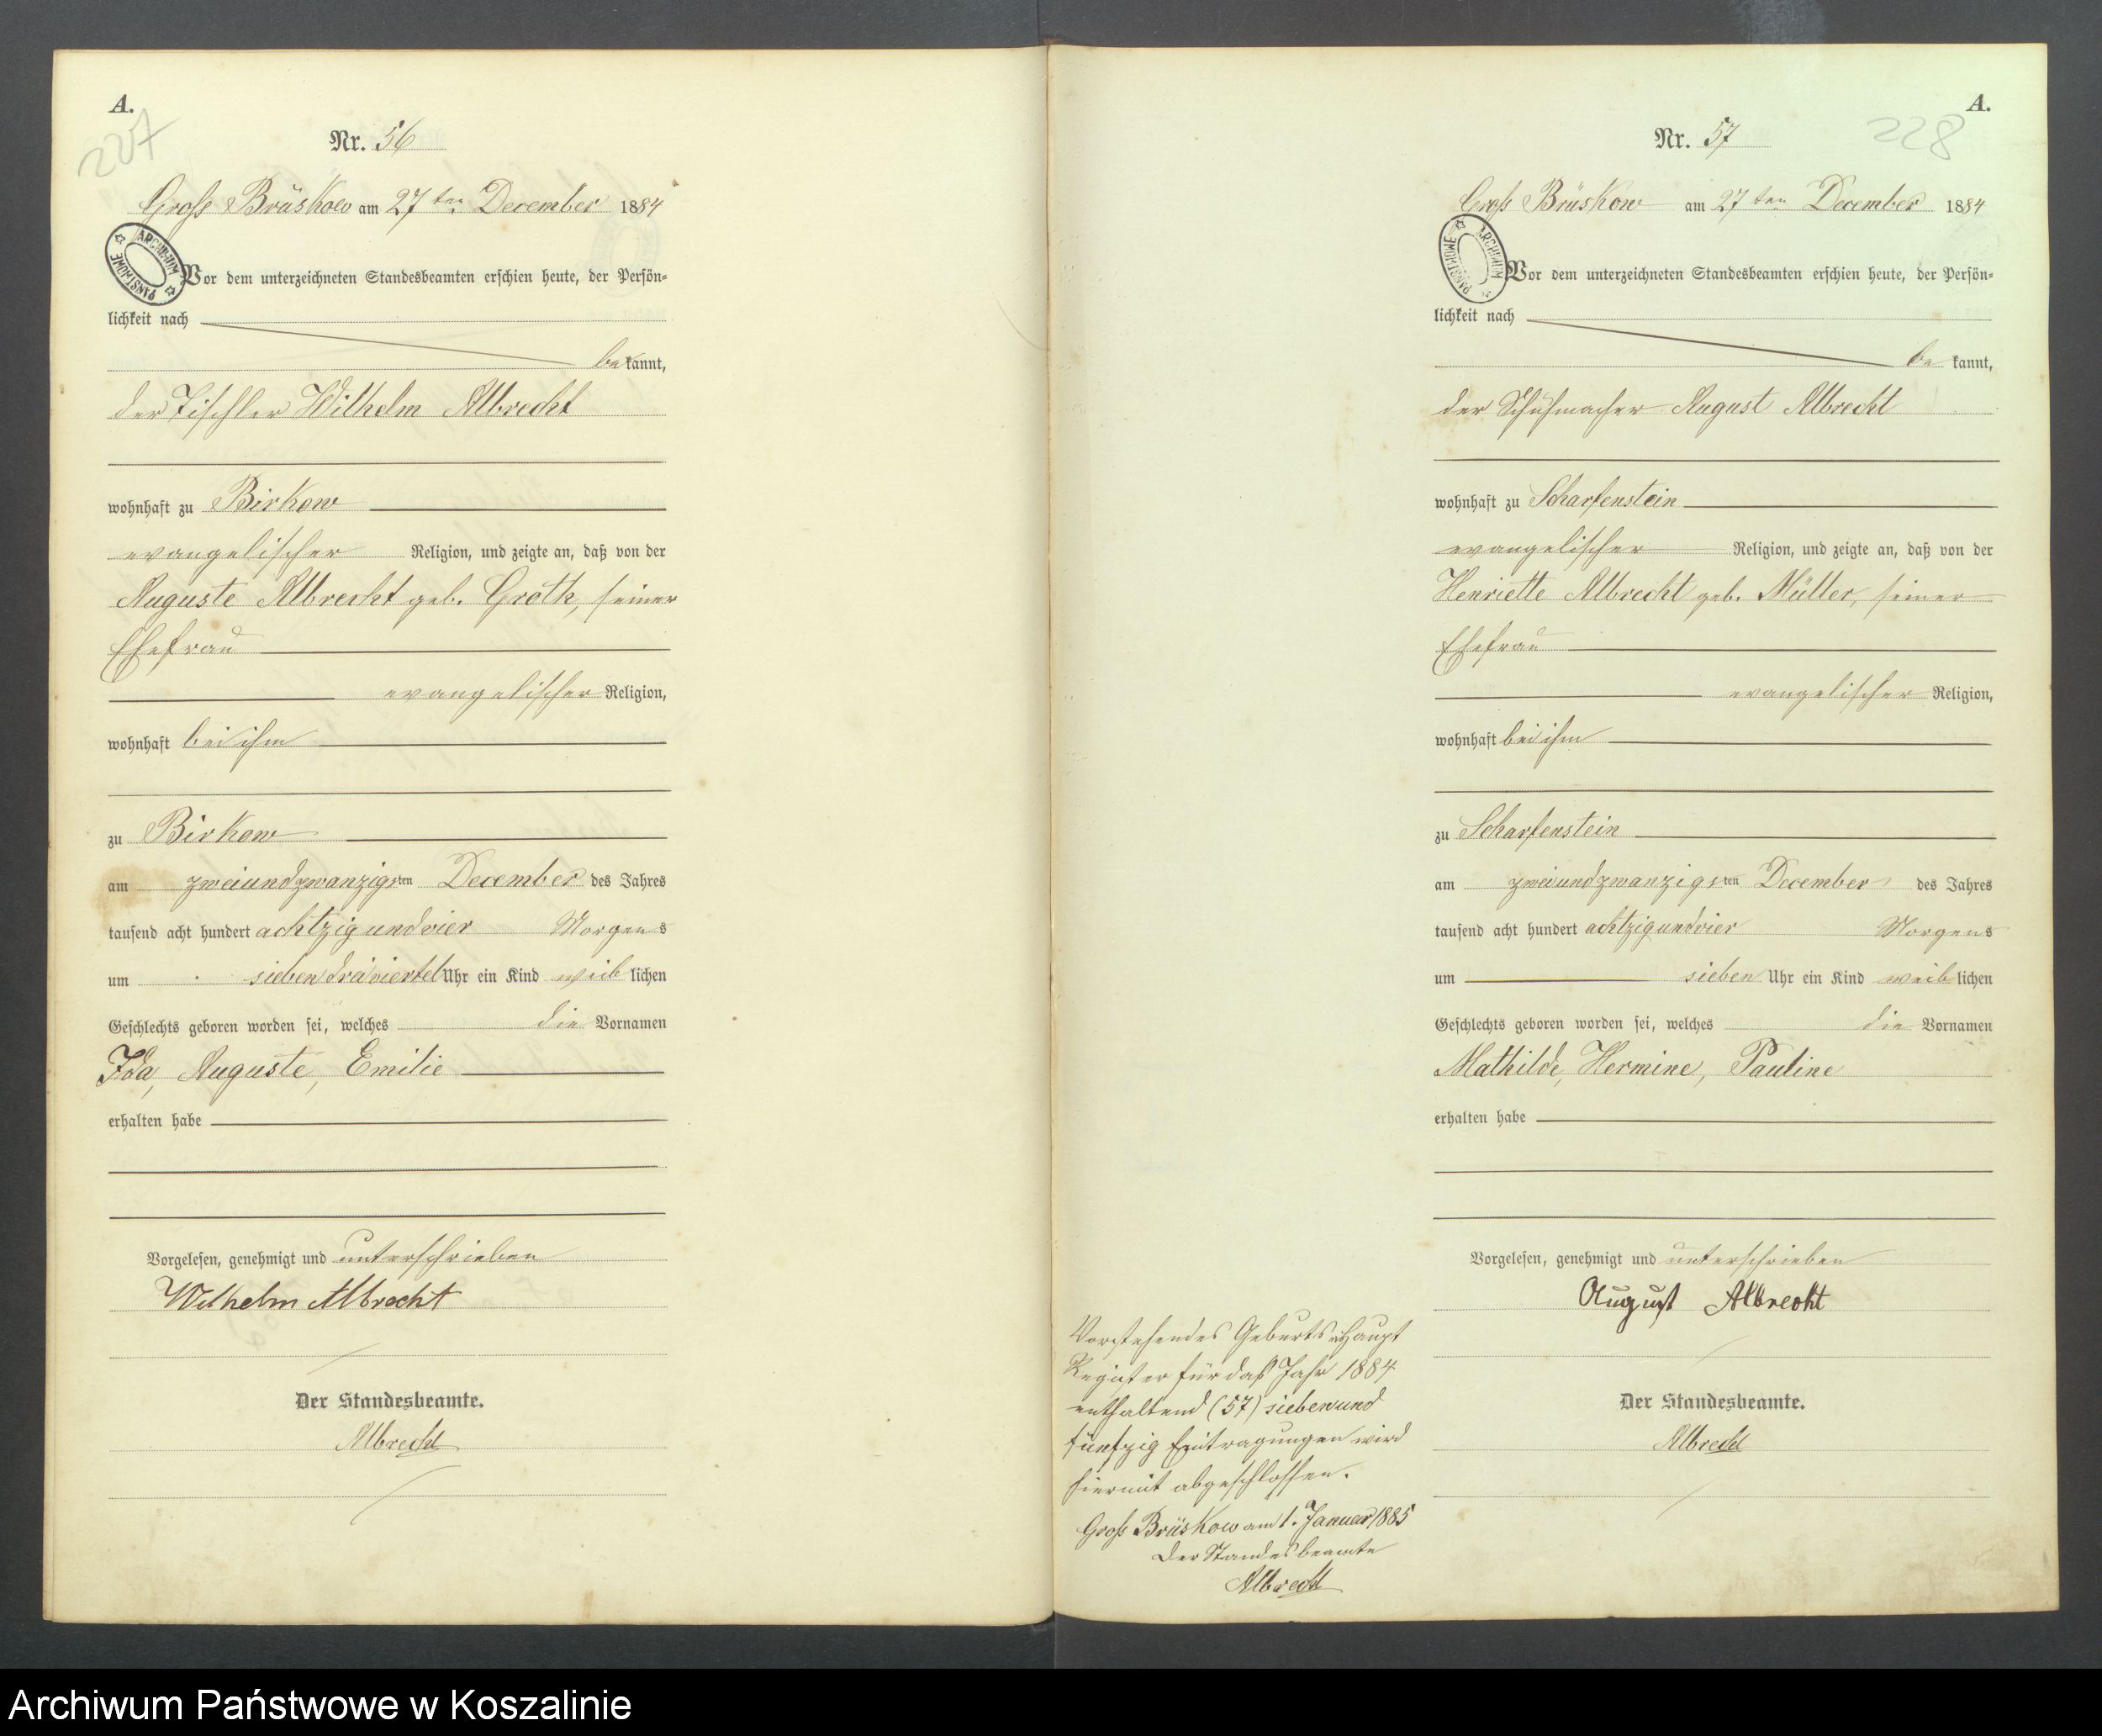 A.
227
Nr. 56
Groß Brüskow am 27ten December 1884
ARCHIWUM PAŃSTWOWE
Vor dem unterzeichneten Standesbeamten erschien heute, der Persön-
lichkeit nach
bekannt,
der Tischler Wilhelm Albrecht
wohnhaft zu Birkow
evangelischer Religion, und zeigte an, daß von der
Auguste Albrecht geb. Groth, seiner
Ehefrau
evangelischer Religion,
wohnhaft bei ihm
zu Birkow
am zweiundzwanzigsten December des Jahres
tausend acht hundert achtzig und vier Morgens
um sieben dreiviertel Uhr ein Kind weiblichen
Geschlechts geboren worden sei, welches die Vornamen
Ida, Auguste, Emilie
erhalten habe
Vorgelesen, genehmigt und unterschrieben
Wilhelm Albrecht
Der Standesbeamte.
Albrecht
A.
228
Nr. 57
Groß Brüskow am 27ten December 1884
ARCHIWUM PAŃSTWOWE
Vor dem unterzeichneten Standesbeamten erschien heute, der Persön-
lichkeit nach
bekannt,
der Schuhmacher August Albrecht
wohnhaft zu Scharfenstein
evangelischer Religion, und zeigte an, daß von der
Henriette Albrecht geb. Müller, seiner
Ehefrau
evangelischer Religion,
wohnhaft bei ihm
zu Scharfenstein
am zweiundzwanzigsten December des Jahres
tausend acht hundert achtzig und vier Morgens
um sieben Uhr ein Kind weiblichen
Geschlechts geboren worden sei, welches die Vornamen
Mathilde, Hermine, Pauline
erhalten habe
Vorgelesen, genehmigt und unterschrieben
August Albrecht
Der Standesbeamte.
Albrecht
Vorstehendes Geburts-Haupt
Register für das Jahr 1884
enthaltend (57) siebenund
fünfzig Eintragungen wird
hiermit abgeschlossen.
Groß Brüskow am 1. Januar 1885
Der Standesbeamte
Albrecht
Archiwum Państwowe w Koszalinie